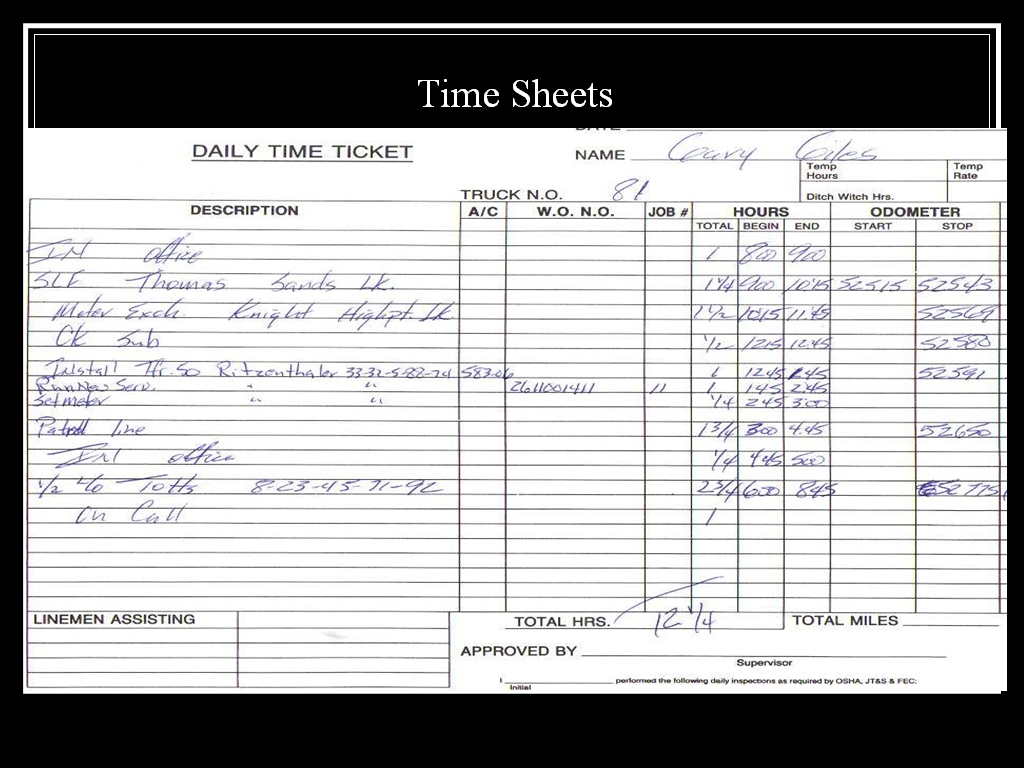 Time Sheets
DAILY TIME TICKET
NAME Gary Giles
Temp Hours Temp Rate
TRUCK N.O. 81 Ditch Witch Hrs.
DESCRIPTION A/C W.O. N.O. JOB # HOURS ODOMETER
TOTAL BEGIN END START STOP
IN office 1 800 900
SLF Thomas Sands Lk. 1 1/4 900 1015 52515 52543
Meter Exch. Knight Highpt. Lk 1 1/2 1015 11:45 52569
Ck Sub 1/2 1215 12:45 52580
Install Tfr. 50 Ritzenthaler 33-32-5-82-74 583.06 1 1245 1:45 52591
Run New Serv. " " 2611001411 11 1 145 2:45
Set meter " " 1/4 245 3:00
Patrol line 1 3/4 300 4:45 52650
IN office 1/4 445 500
1/2 40 Totts 8-23-45-71-92 2 3/4 600 845 52775
on Call 1
LINEMEN ASSISTING
TOTAL HRS. 12 1/4 TOTAL MILES
APPROVED BY
Supervisor
I performed the following daily inspections as required by OSHA, JT&S & FEC:
Initial